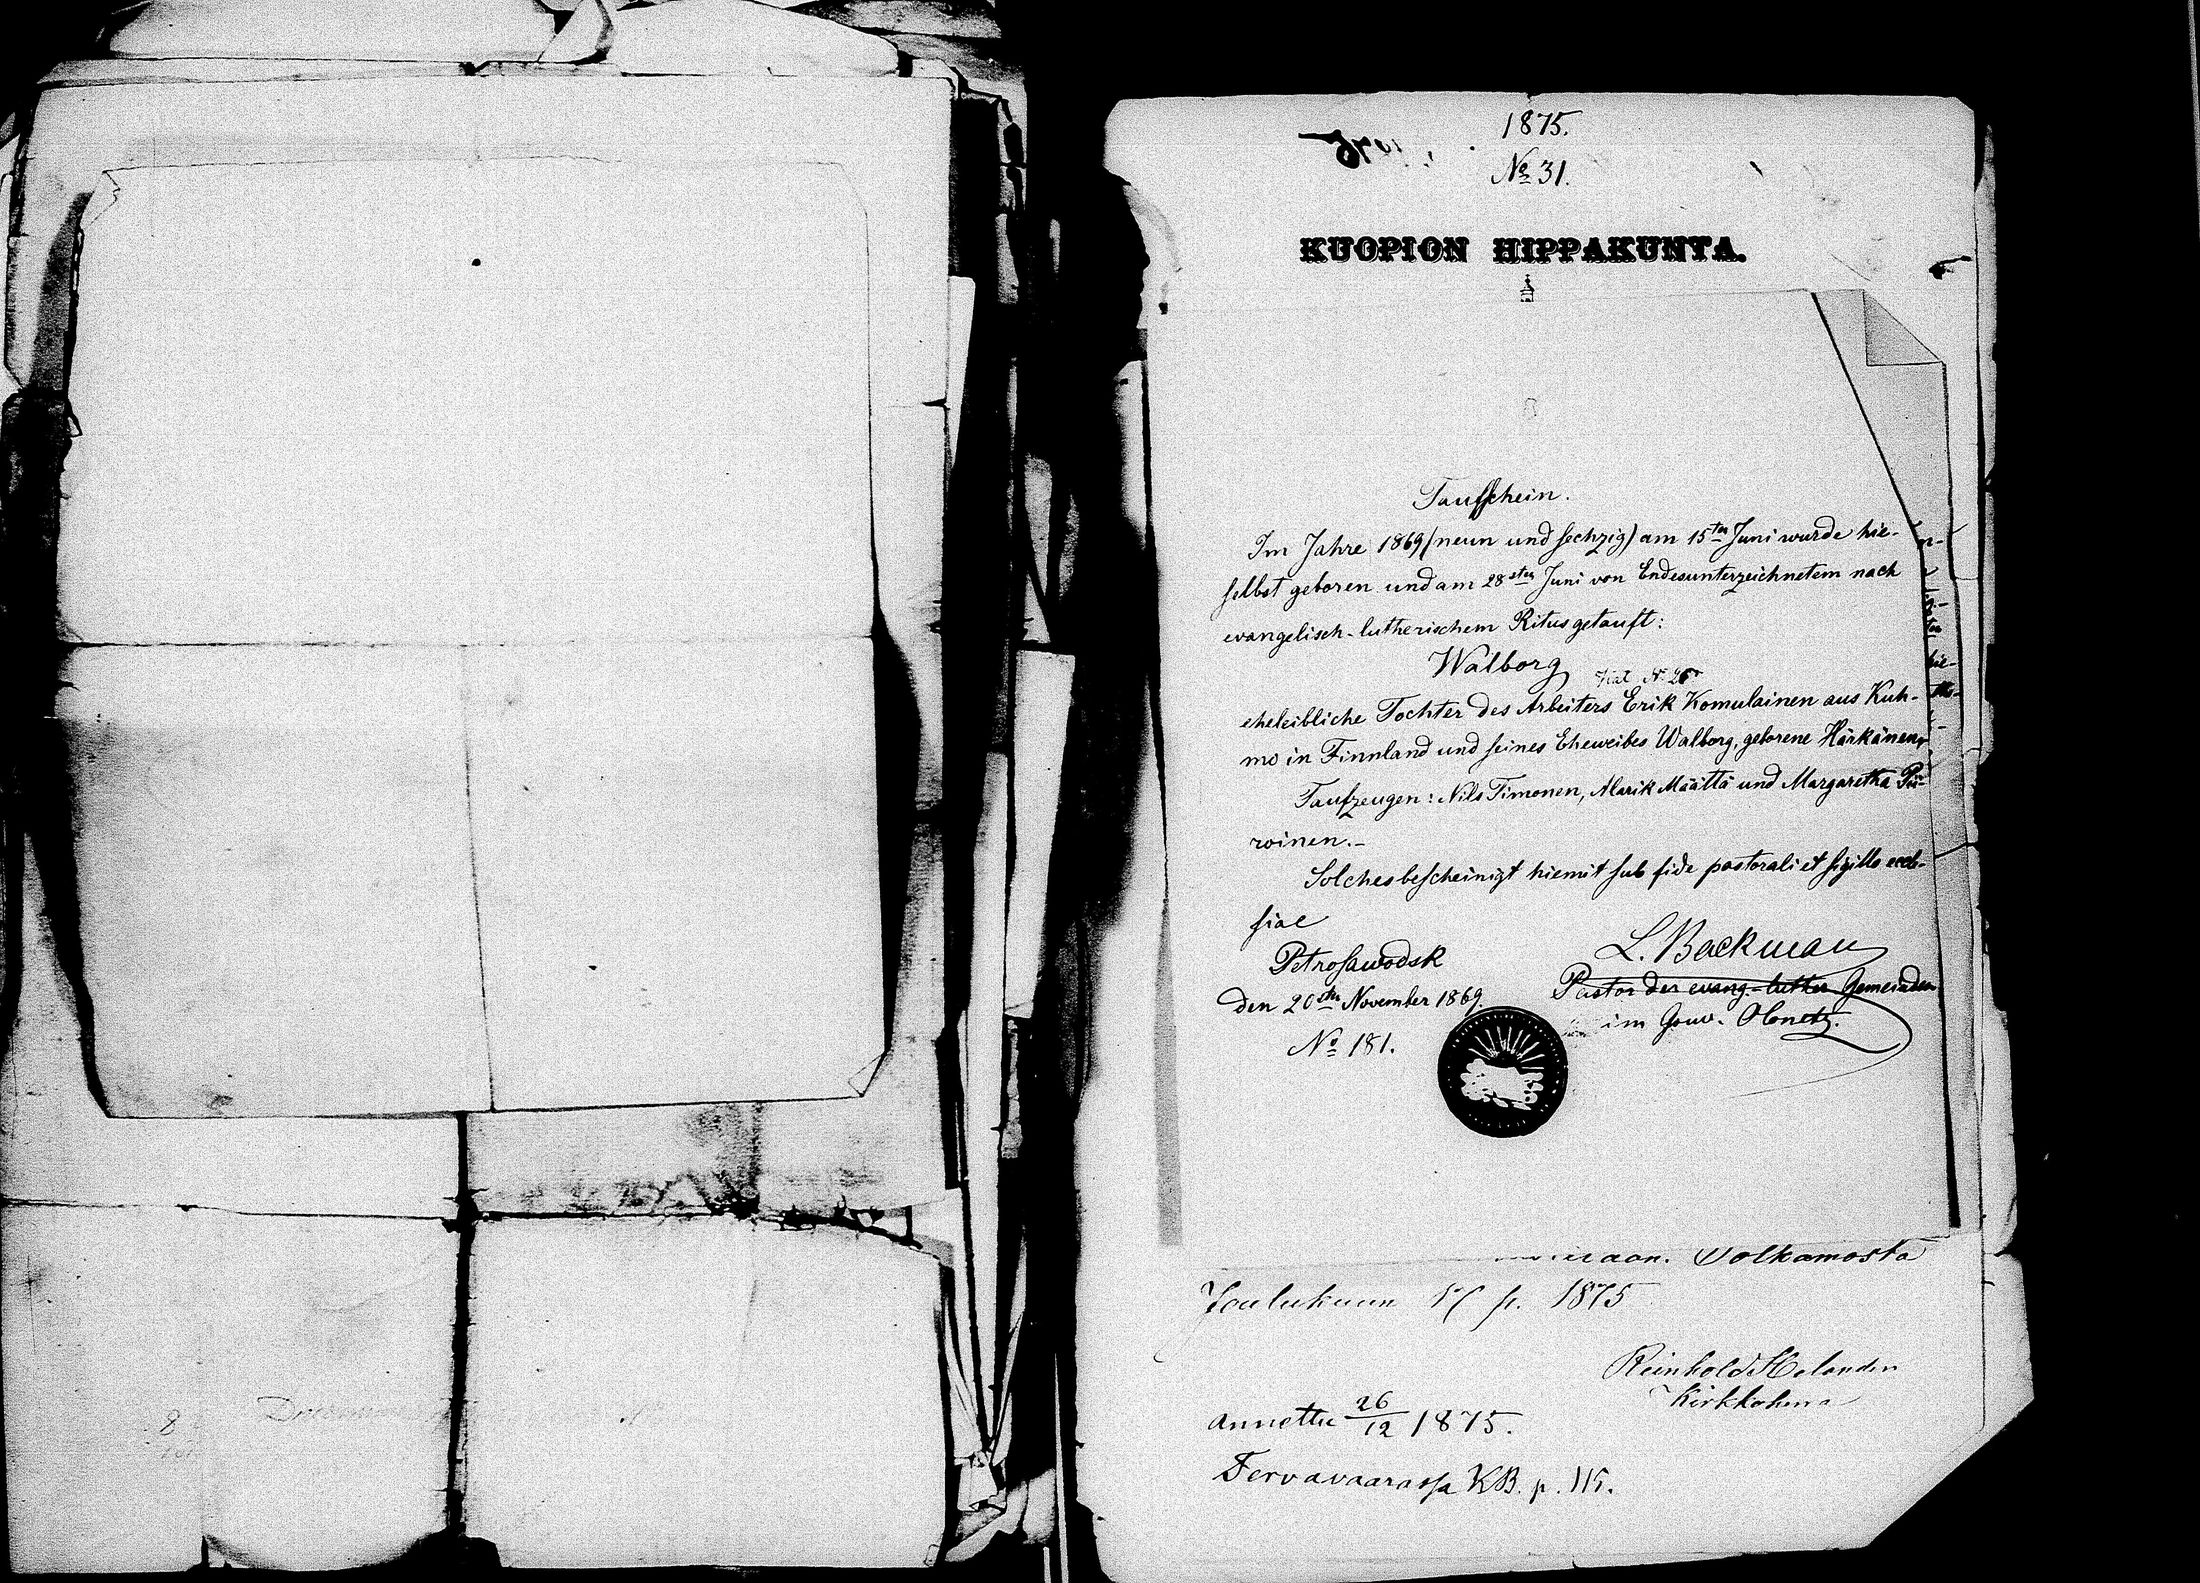 1875.
No 31.
KUOPION HIPPAKUNTA.
Taufschein.
Im Jahre 1869 (neun und sechzig) am 15ten Juni wurde hie-
selbst geboren und am 28sten Juni von Endesunterzeichnetem nach
evangelisch-lutherischem Ritus getauft:
Walborg
No 26
eheleibliche Tochter des Arbeiters Erik Komulainen aus Kuh-
mo in Finnland und seines Eheweibes Walborg, geborene Härkänen,
Taufzeugen: Nils Timonen, Alarik Määttä und Margaretha Pii-
roinen.-
Solches bescheinigt hiemit sub fide pastorali et sigillo eccle-
siae
L. Backman
Petrosawodsk
Pastor der evang.-luther Gemeinden
den 20sten November 1869.
im Gouv. Olonetz.
No 181.
Sotkamosta
Joulukuun 17 p. 1875
Reinhold Helander
Kirkkoherra
Annettu 26/12 1875.
Tervavaarassa KB. p. 115.